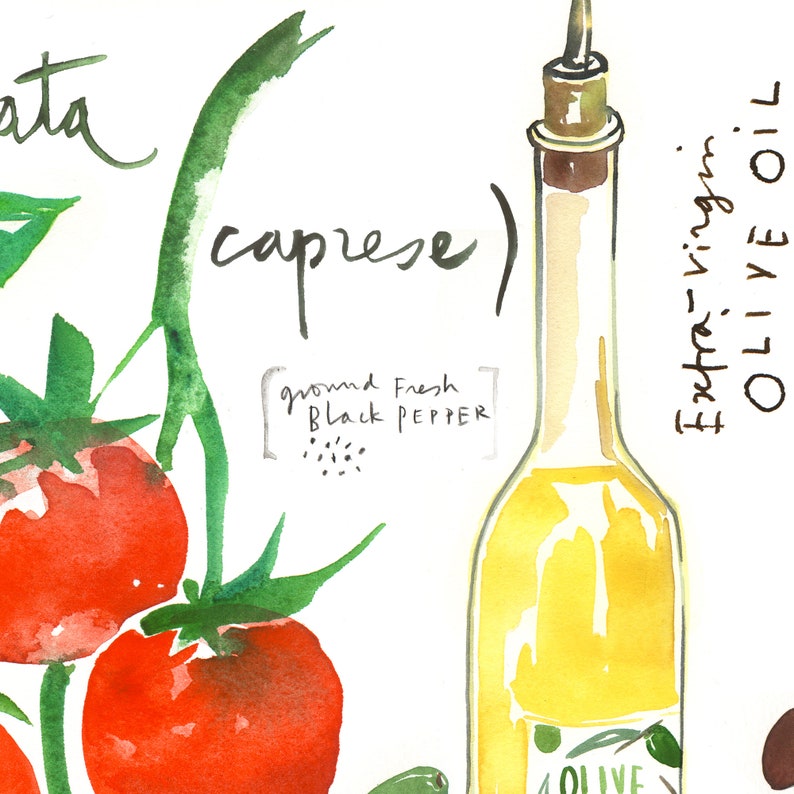 ata
caprese)
[ground Fresh
Black PEPPER]
Extra-virgin
OLIVE OIL
OLIVE